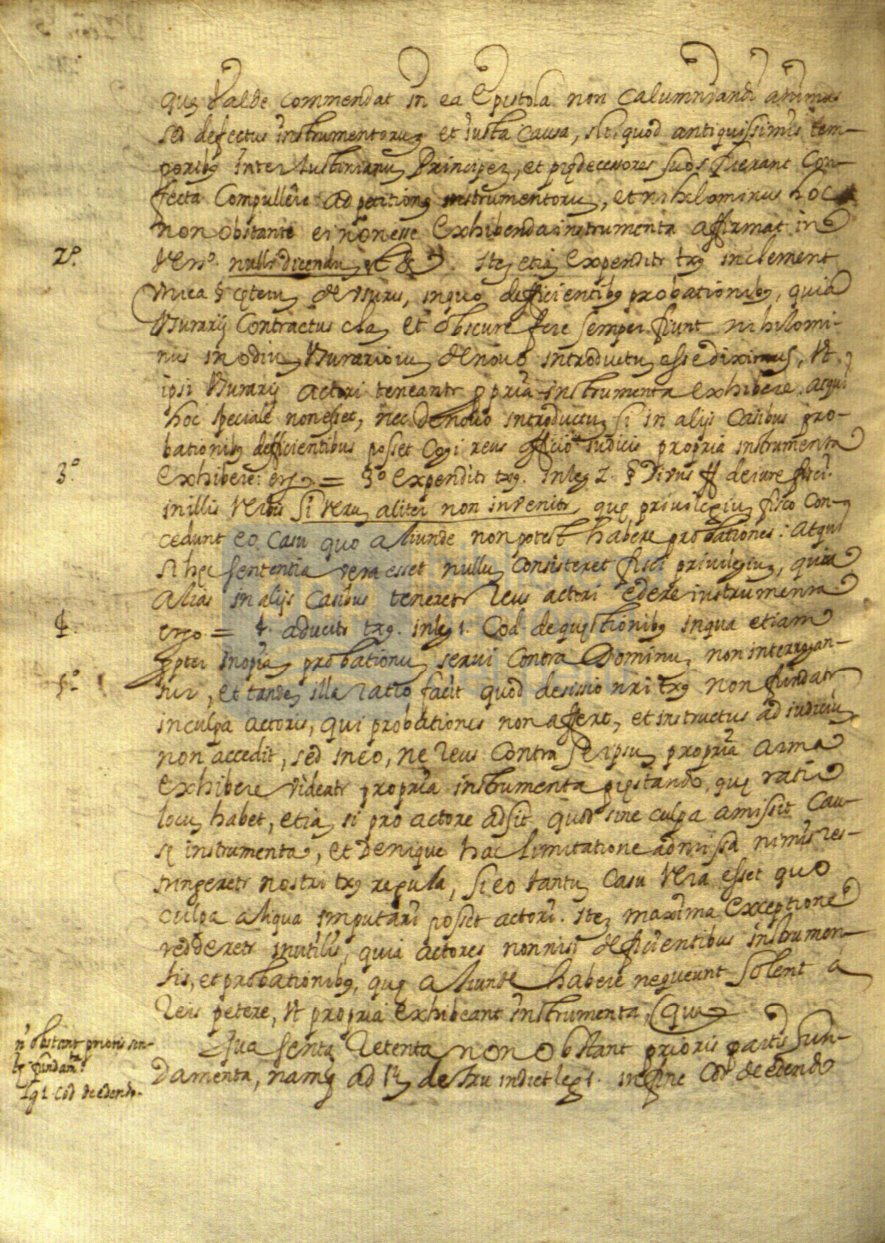 quę valde commendat in ea Epistola non Calumniandi animus
sed defectus instrumentorum et iusta causa, scit. quod antiquissimis tem-
poribus inter Iustinianum Principem, et prędecessores suos fuerant Con-
fecta Compullere ad petitionem instrumentorum, et nihilominus hoc
non obstante ei non esse exhibenda instrumenta affirmat in
2º. Vers.º nulli dicendum Itę etią expenditr txꝫ in clement
unica § cęterum de usuris, in quo deficientibꝫ probationibꝫ, quia
Usurarij Contractus clą et obscure fere semper fiunt nihilomi-
nus in odium Usurariorum de novo introductum esse diximus, Ut
ipsi Usurarij actori teneantr propria instrumenta exhibere. atqui
hoc speciale non esset, nec de novo introductum si in alijs Casibus pro-
bationibꝫ deficientibus posset Cogi reus officio Iudicis propria instrumenta
3.º exhibere: ergo = 3º expenditr txꝫ. in leg 2. § Divus ff de iure fisci
in illis verbis si verum aliter non invenitr, quę privilegium fisco Con-
cedunt eo Casu quo aliunde non potest habere probationes: Atqui
si hęc sententia vera esset nullum Consisteret fisci privilegium, quia
alias in alijs Casibus teneretr Reus actori edere instrumenta
4. ergo = 4. aducitr txꝫ. in leg 1. Cod de quęstionibꝫ in qua etiam
propter inopiam probationum servi Contra Dominum non interrogan-
5.º tur, et tandem illa ratio facit quod desissio nri txꝫ non fundatr
in culpa actoris, qui probationes non affert, et instructus ad iudicium
non accedit, sed in eo, ne Reus Contra se ipsum propria arma
exhibere videatr propria instrumenta pręstando, quę ratio
locum habet, etią si pro actore adsit quod sine culpa amissit Cau-
sę instrumenta, et Denique hac limitatione admissa nimis res-
tringeretr nostri txꝫ regula, si eo tantum Casu vera esset quo
culpa aliqua imputari posset actori. Itę maxima exceptione
redderetr inutilis, quia actores non nisi deficientibus instrumen-
tis, et probationibꝫ, quę aliunde habere nequeunt solent a
Reis petere, Ut propria exhibeant instrumenta. (qua
n' obstant prioris sen-
tę fundanta
Lg 1. Cod de edendo.
Qua sentą Retenta non obstant prioris partis fun-
damenta, namꝫ ad leg 1. in fine Cod de edendo